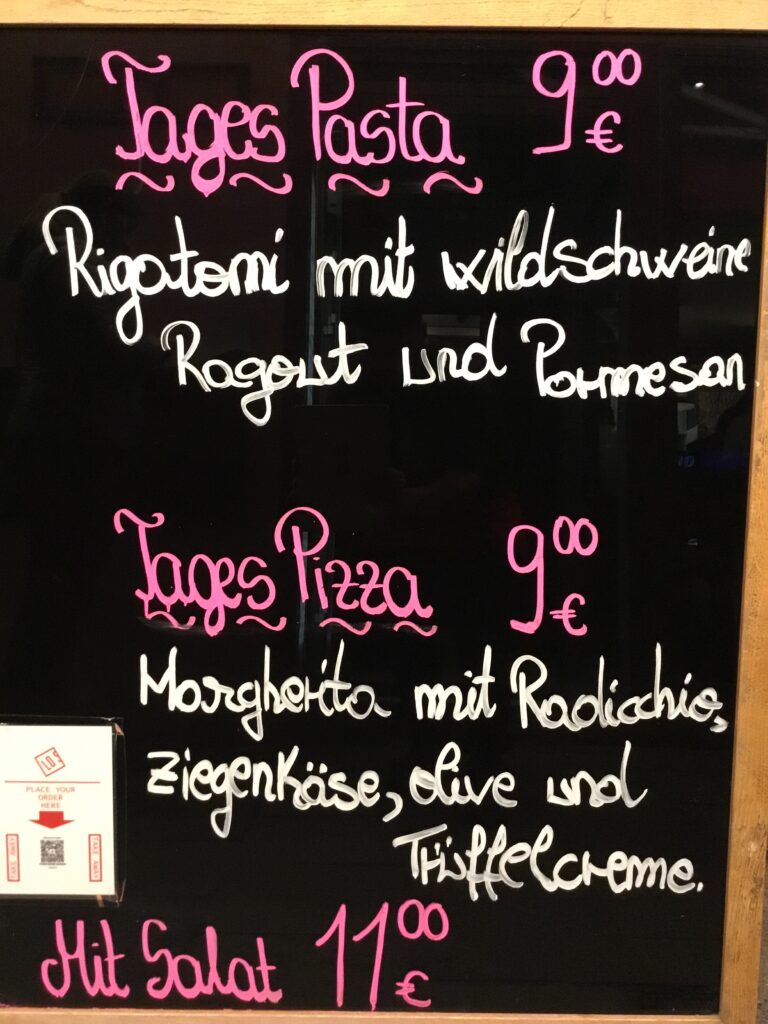 Tages Pasta 9 00 €
Rigatoni mit wildschweine
Ragout und Parmesan
Tages Pizza 9 00 €
Margherita mit Radicchio,
Ziegenkäse, olive und
Trüffelcreme.
LO!
PLACE YOUR
ORDER
HERE
TAKE AWAY
TAKE AWAY
Mit Salat 11 00 €